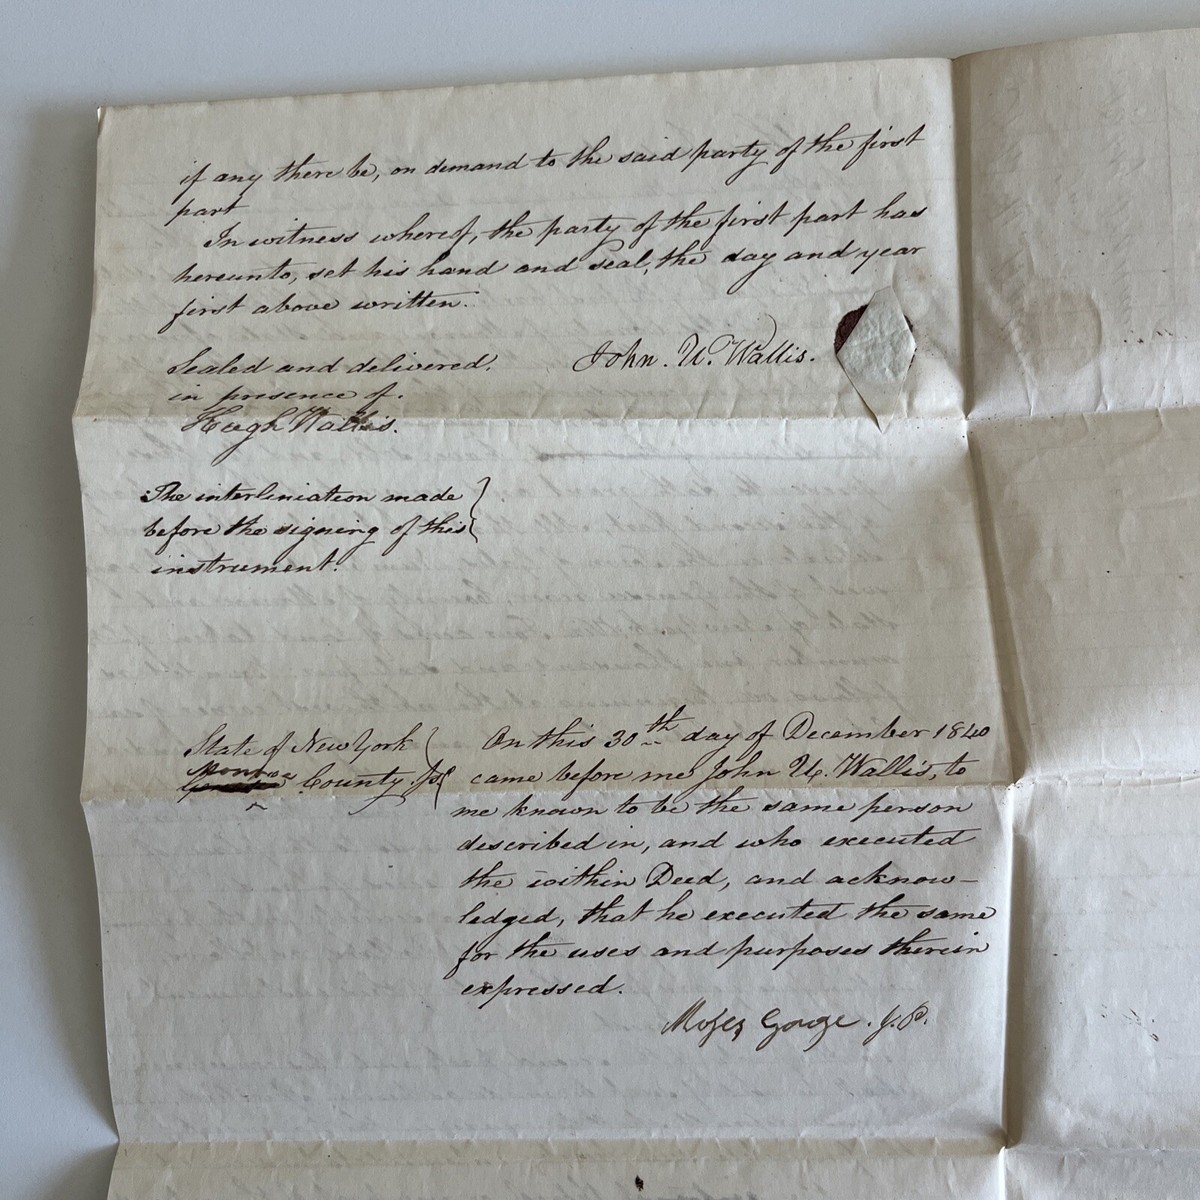 if any there be, on demand to the said party of the first
part
In witness whereof, the party of the first part has
hereunto, set his hand and seal, the day and year
first above written.
Sealed and delivered.
in presence of.
Hugh Wallis.
John. U. Wallis.
The interliniation made
before the signing of this
instrument.
State of New York
Monroe
County. Ss
On this 30th day of December 1840
came before me John U. Wallis, to
me known to be the same person
described in, and who executed
the within Deed, and acknow-
ledged, that he executed the same
for the uses and purposes therein
expressed.
Moses Gage. J.P.